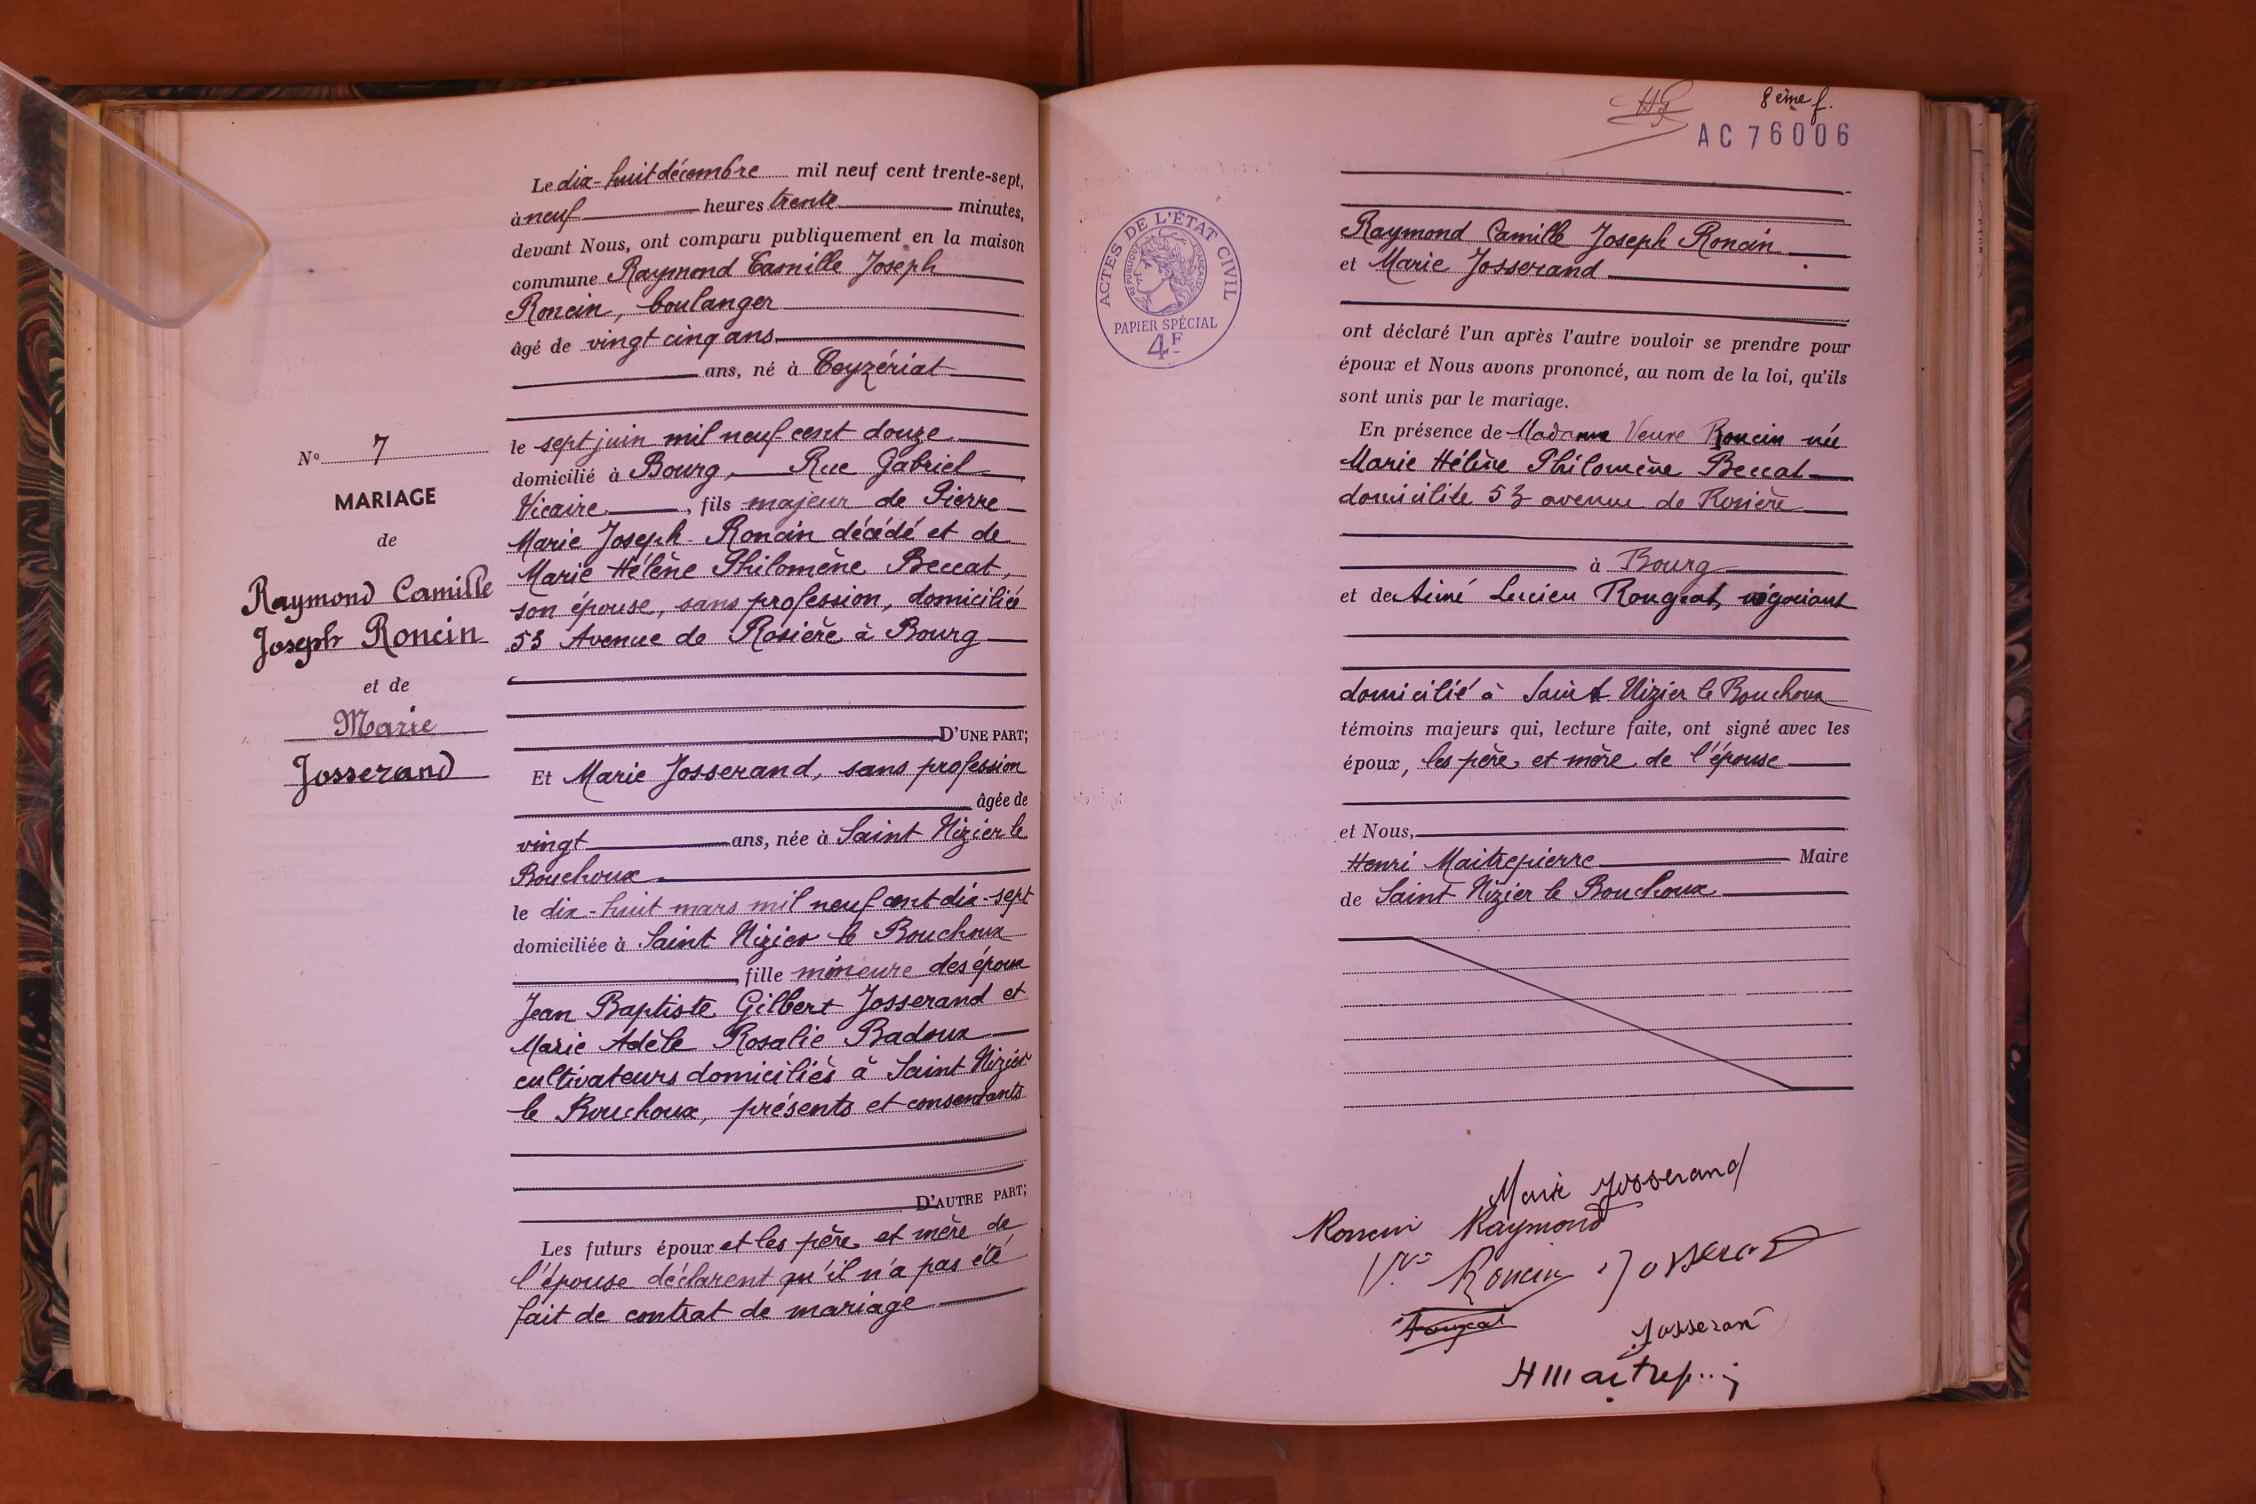 N° 7
MARIAGE
de
Raymond Camille
Joseph Roncin
et de
Marie
Josserand
Le dix-huit décembre mil neuf cent trente-sept,
à neuf heures trente minutes,
devant Nous, ont comparu publiquement en la maison
commune Raymond Camille Joseph
Roncin, boulanger
âgé de vingt cinq ans
ans, né à Ceyzériat
le sept juin mil neuf cent douze
domicilié à Bourg, Rue Gabriel
Vicaire, fils majeur de Pierre
Marie Joseph Roncin décédé et de
Marie Hélène Philomène Beccat,
son épouse, sans profession, domiciliée
53 Avenue de Rosière à Bourg
D'UNE PART;
Et Marie Josserand, sans profession
âgée de
vingt ans, née à Saint Nizier le
Bouchoux
le dix-huit mars mil neuf cent dix-sept
domiciliée à Saint Nizier le Bouchoux
fille mineure des époux
Jean Baptiste Gilbert Josserand et
Marie Adèle Rosalie Badoux
cultivateurs domiciliés à Saint Nizier
le Bouchoux, présents et consentants
D'AUTRE PART;
Les futurs époux et les père et mère de
l'épouse déclarent qu'il n'a pas été
fait de contrat de mariage
8ème f.
AC 76006
ACTES DE L'ÉTAT CIVIL
RÉPUBLIQUE FRANÇAISE
PAPIER SPÉCIAL
4F
Raymond Camille Joseph Roncin
et Marie Josserand
ont déclaré l'un après l'autre vouloir se prendre pour
époux et Nous avons prononcé, au nom de la loi, qu'ils
sont unis par le mariage.
En présence de Madame Veuve Roncin née
Marie Hélène Philomène Beccat
domiciliée 53 avenue de Rosière
à Bourg
et de Aimé Lucien Rongeat, négociant
domicilié à Saint Nizier le Bouchoux
témoins majeurs qui, lecture faite, ont signé avec les
époux, les père et mère de l'épouse
et Nous,
Henri Maitrepierre Maire
de Saint Nizier le Bouchoux
Marie Josserand
Roncin Raymond
Vve Roncin Josserand
Josserand